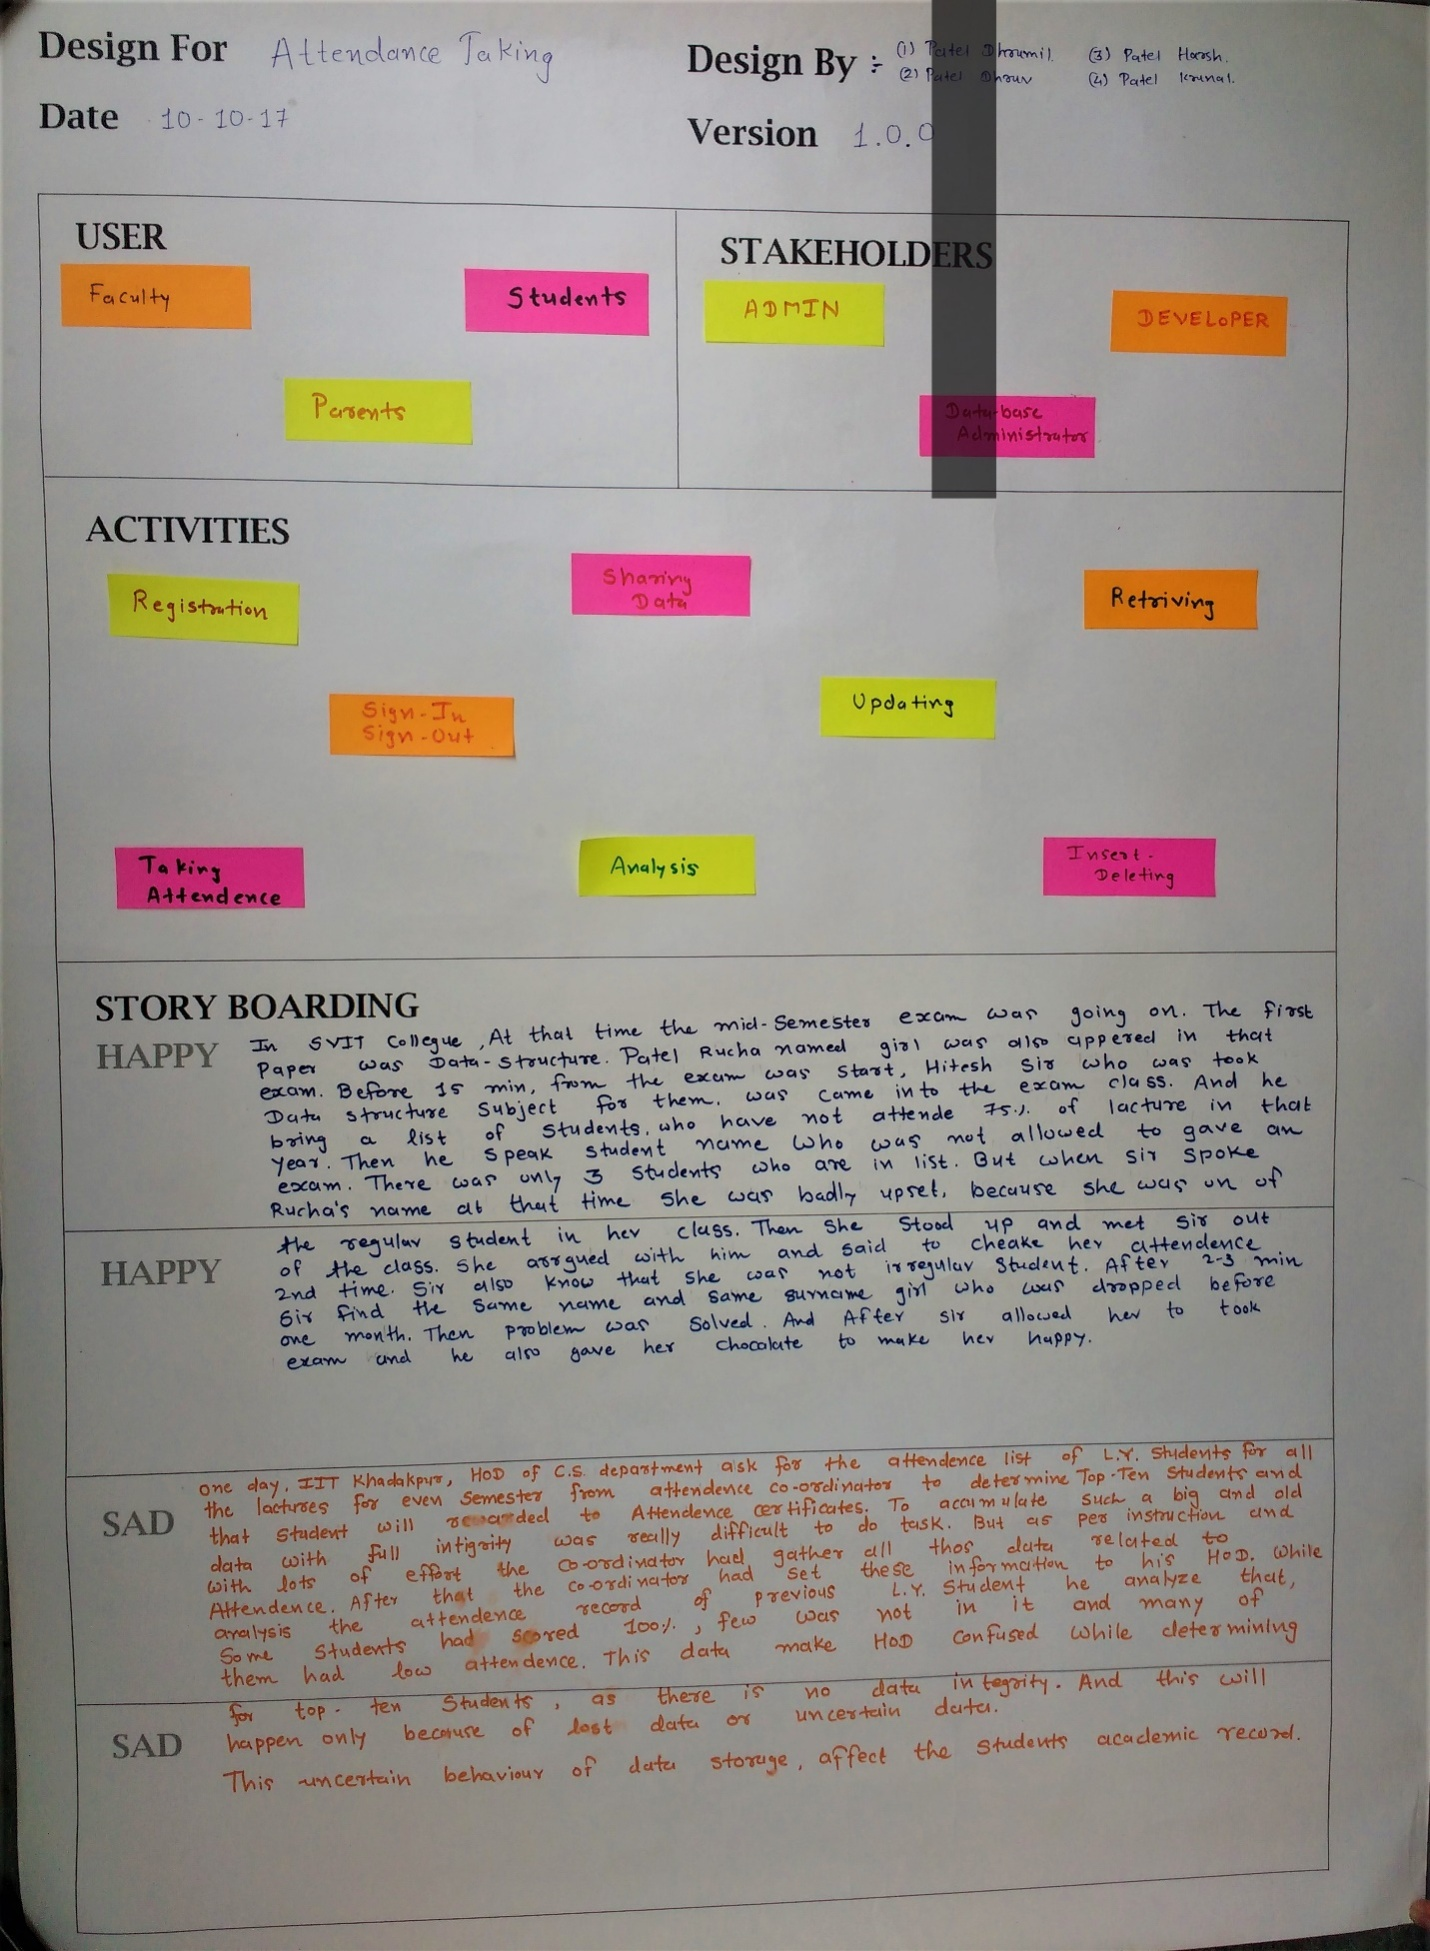 Design For Attendance Taking
Design By :- (1) Patel Dhrumil. (3) Patel Harsh.
(2) Patel Dhruv (4) Patel Krunal.
Date 10-10-17
Version 1.0.0
USER
Faculty
Students
Parents
STAKEHOLDERS
ADMIN
DEVELOPER
Data-base
Administrator
ACTIVITIES
Registration
Sharing
Data
Retriving
Sign-In
Sign-Out
Updating
Taking
Attendence
Analysis
Insert-
Deleting
STORY BOARDING
HAPPY
In SVIT Collegue, At that time the mid-Semester exam was going on. The first
Paper was Data-Structure. Patel Rucha named girl was also appered in that
exam. Before 15 min, from the exam was start, Hitesh Sir who was took
Data structure Subject for them. was came into the exam class. And he
bring a list of students. who have not attende 75% of lacture in that
year. Then he speak student name who was not allowed to gave an
exam. There was only 3 students who are in list. But when sir spoke
Rucha's name at that time she was badly upset, because she was un of
HAPPY
the regular student in her class. Then she stood up and met sir out
of the class. she arrgued with him and said to cheake her attendence
2nd time. Sir also know that she was not irregular student. After 2-3 min
Sir find the same name and same surname girl who was dropped before
one month. Then problem was solved. And After sir allowed her to took
exam and he also gave her chocolate to make her happy.
SAD
one day, IIT Khadakpur, HOD of C.S. department ask for the attendence list of L.Y. Students for all
the lactures for even semester from attendence co-ordinator to determine Top-Ten Students and
that student will rewarded to Attendence certificates. To accumulate such a big and old
data with full intigrity was really difficult to do task. But as per instruction and
with lots of effort the co-ordinator had gather all thos data related to
Attendence. After that the co-ordinator had set these information to his HOD. while
analysis the attendence record of previous L.Y. Student he analyze that,
Some students had scored 100%, few was not in it and many of
them had low attendence. This data make HOD confused while determining
SAD
for top-ten Students, as there is no data integrity. And this will
happen only because of lost data or uncertain data.
This uncertain behaviour of data storage, affect the students academic record.